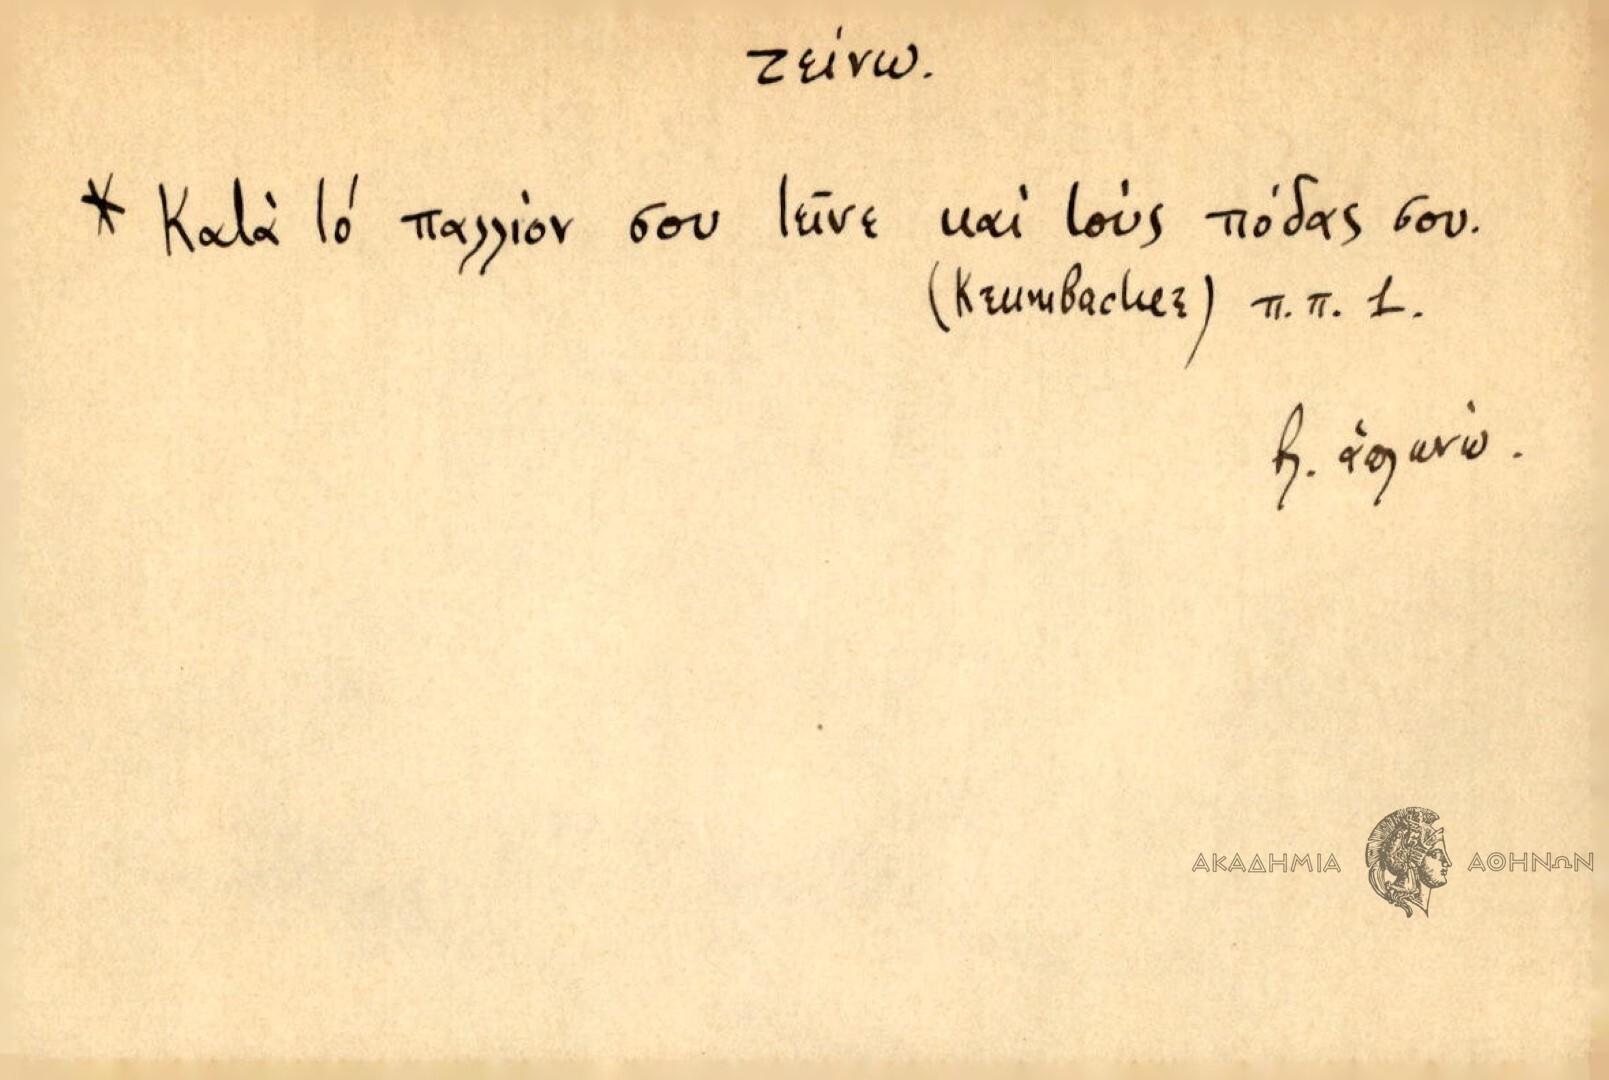 τείνω.
* Κατὰ τό παλλίον σου τεῖνε καὶ τοὺς πόδας σου.
(Krumbacher) π.π. 1.
βλ. ἁπλωνω.
ΑΚΑΔΗΜΙΑ ΑΘΗΝΩΝ